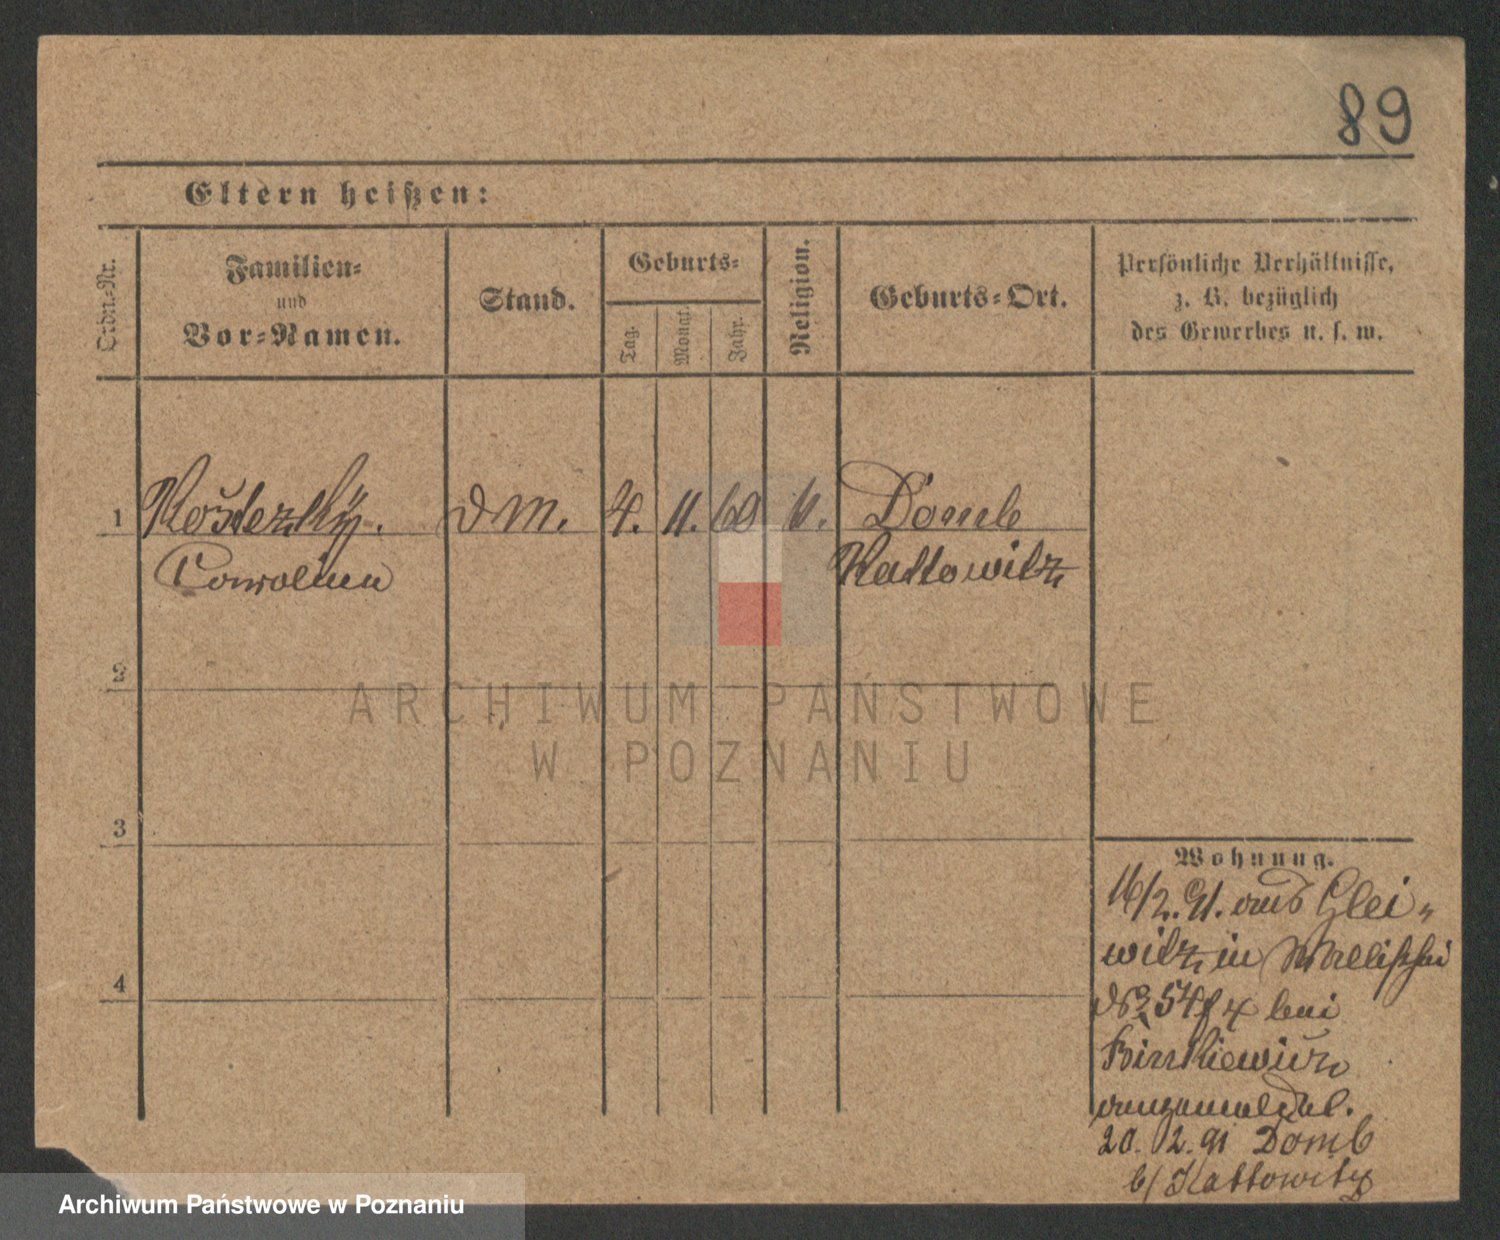 89
Eltern heißen:
Ordn.-Nr.
Familien-
und
Vor-Namen.
Stand.
Geburts-
Tag.
Monat.
Jahr.
Religion.
Geburts-Ort.
Persönliche Verhältnisse,
z. B. bezüglich
des Gewerbes u. s. w.
1
d M. 4. 11. 69 k. Domb
Carolina Kattowitz
2
ARCHIWUM PAŃSTWOWE
W POZNANIU
3
Wohnung.
16/2. 91. aus Glei-
witz in Wallischei
No 54 bei
angemeldet.
20. 12. 91 Domb
b/ Kattowitz
4
Archiwum Państwowe w Poznaniu